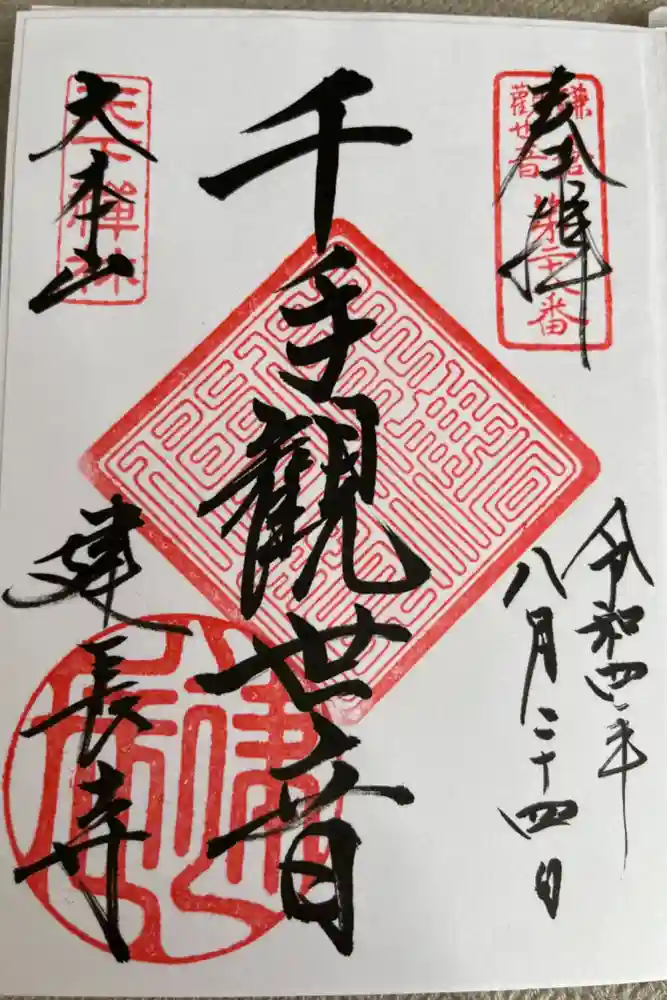 奉拝
鎌倉
觀世音
第二十八番
令和四年
八月二十四日
千手觀世音
天下禅林
大本山
建長寺